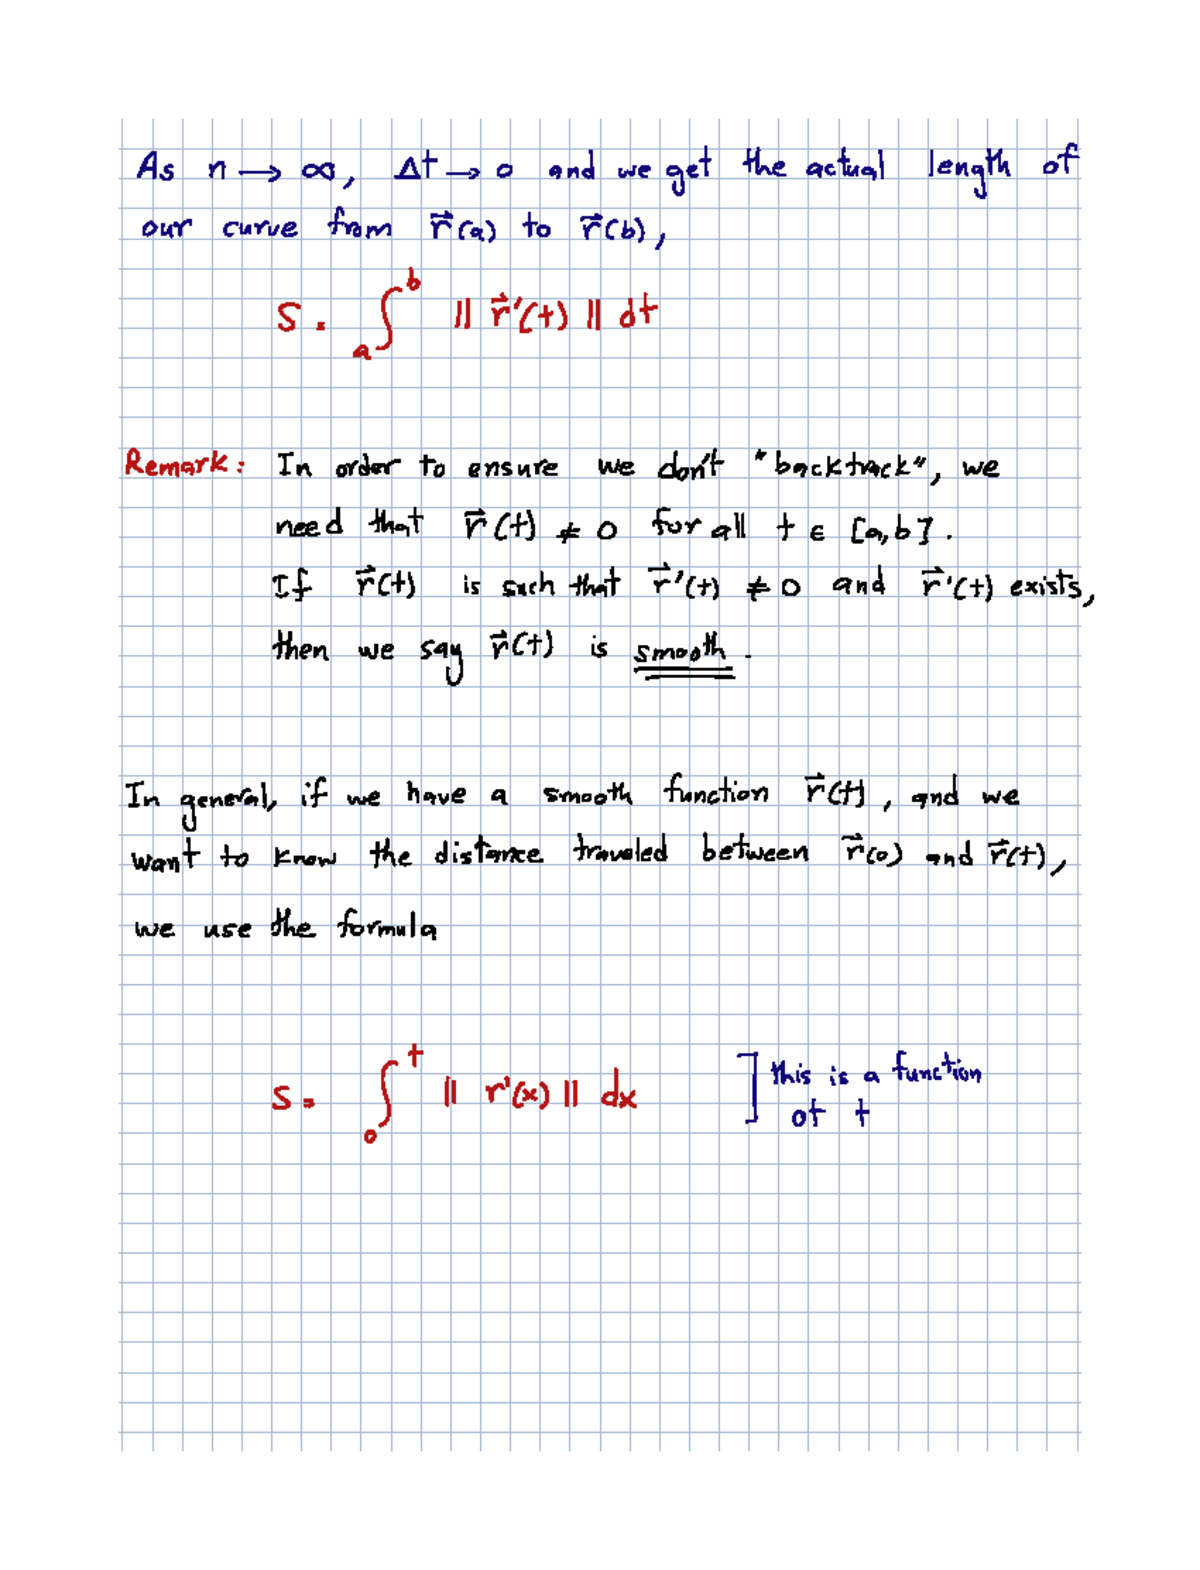 As n → ∞, Δt → 0 and we get the actual length of
our curve from r⃗(a) to r⃗(b),
S = ∫_a^b || r⃗'(t) || dt
Remark: In order to ensure we don't "backtrack", we
need that r⃗(t) ≠ 0 for all t ∈ [a,b].
If r⃗(t) is such that r⃗'(t) ≠ 0 and r⃗'(t) exists,
then we say r⃗(t) is smooth.
In general, if we have a smooth function r⃗(t), and we
want to know the distance traveled between r⃗(0) and r⃗(t),
we use the formula
S = ∫_0^t || r'(x) || dx ] this is a function
of t